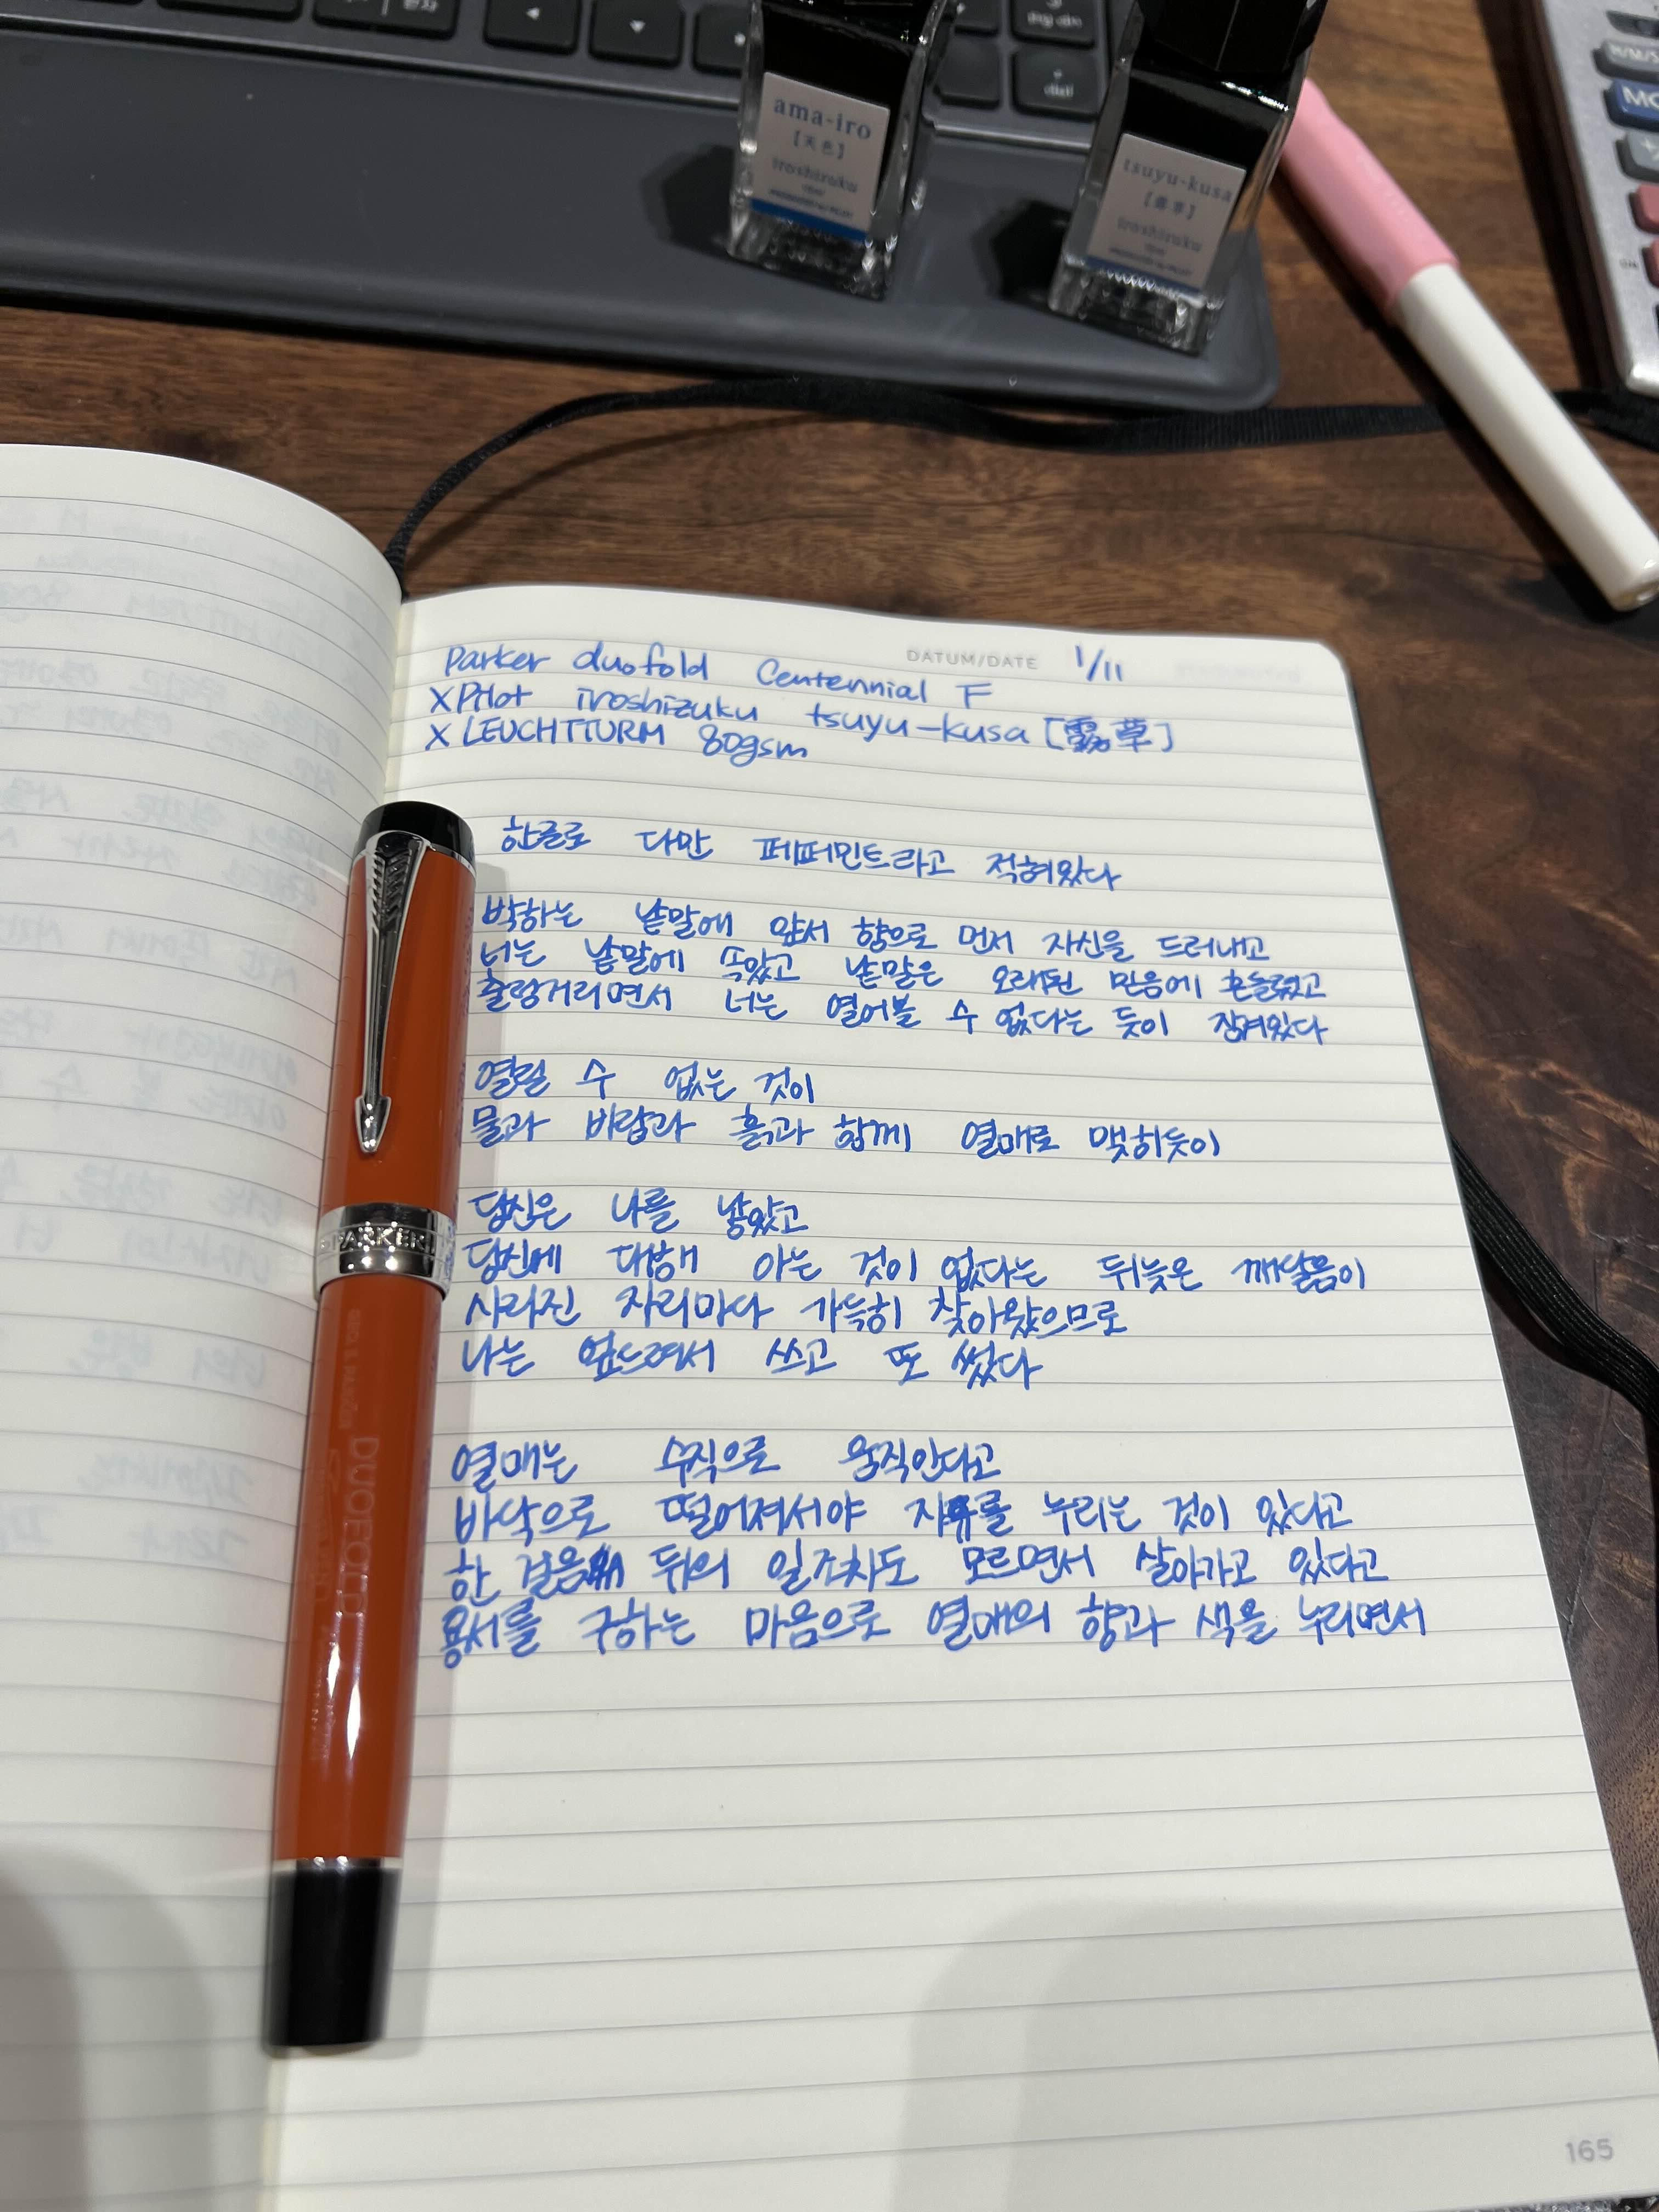 ama-iro
[天色]
iroshizuku
tsuyu-kusa
[露草]
iroshizuku
DATUM/DATE 1/11
Parker duofold Centennial F
X Pilot iroshizuku tsuyu-kusa [露草]
X LEUCHTTURM 80gsm
한글로 다만 페퍼민트라고 적혀있다
박하는 낱말에 앞서 향으로 먼저 자신을 드러내고
너는 낱말에 속았고 낱말은 오래된 믿음에 흔들렸고
출렁거리면서 너는 열어볼 수 없다는 듯이 잠겨있다
열릴 수 없는 것이
물과 바람과 흙과 함께 열매로 맺히듯이
당신은 나를 낳았고
당신에 대해 아는 것이 없다는 뒤늦은 깨달음이
사라진 자리마다 가득히 찾아왔으므로
나는 엎드려서 쓰고 또 썼다
열매는 수직으로 움직인다고
바닥으로 떨어져서야 자유를 누리는 것이 있다고
한 걸음 뒤의 일조차도 모르면서 살아가고 있다고
용서를 구하는 마음으로 열매의 향과 색을 누리면서
PARKER
DUOFOLD
165